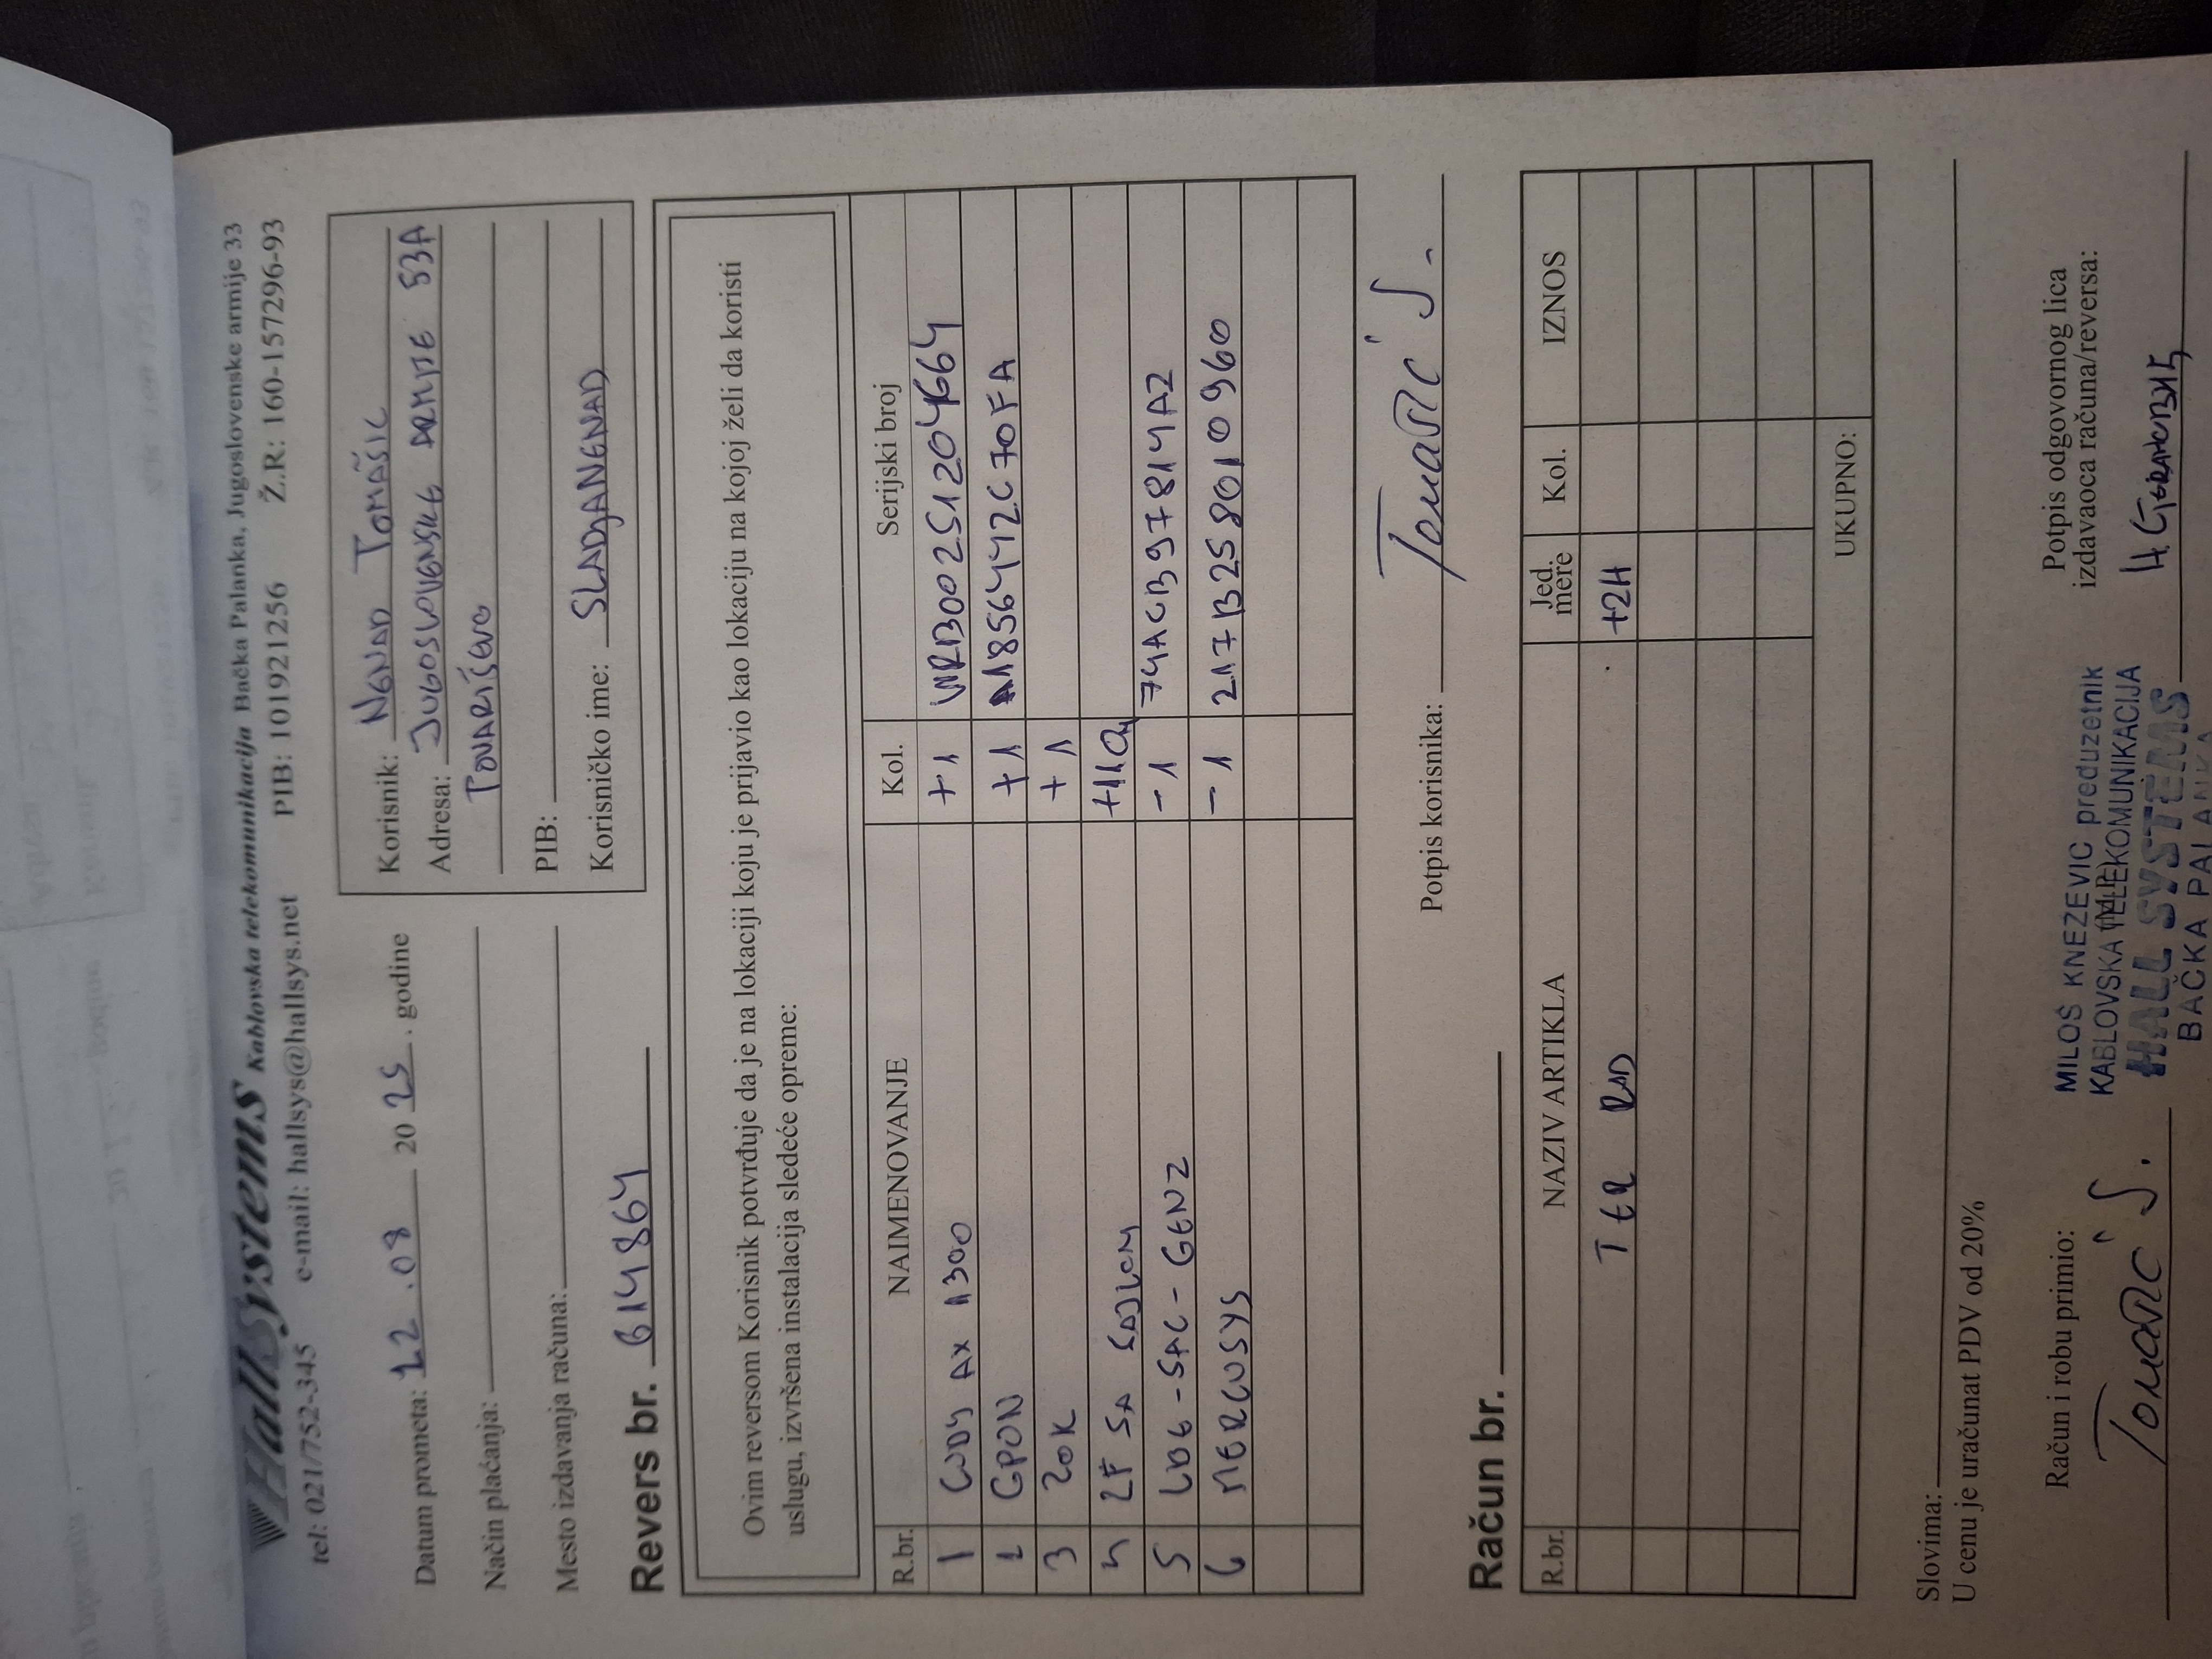 HallSystems Kablovska telekomunikacija Bačka Palanka, Jugoslovenske armije 33
tel: 021/752-345 e-mail: hallsys@hallsys.net PIB: 101921256 Ž.R.: 160-157296-93
Datum prometa: 12.08 20 25. godine
Način plaćanja:
Mesto izdavanja računa:
Korisnik: NENAD TOMAŠIĆ
Adresa: JUGOSLOVENSKE ARMIJE 53A
TOVARIŠEVO
PIB:
Korisničko ime: SLADJANENAD
Revers br. 614864
Ovim reversom Korisnik potvrđuje da je na lokaciji koju je prijavio kao lokaciju na kojoj želi da koristi
uslugu, izvršena instalacija sledeće opreme:
R.br. NAIMENOVANJE Kol. Serijski broj
1 CUDY AX 1300 +1
2 GPON +1 1856442C70FA
3 ZOK +1
4 2F SA SAJLOM
5 LBE-5AC-GEN2 -1 74ACB97814A2
6 MERCUSYS -1 217B258010960
Potpis korisnika: Tomašić S.
Račun br.
R.br. NAZIV ARTIKLA Jed. mere Kol. IZNOS
TER RAD +2H
UKUPNO:
Slovima:
U cenu je uračunat PDV od 20%
Račun i robu primio:
Tomašić S.
MILOŠ KNEŽEVIĆ preduzetnik
KABLOVSKA TELEKOMUNIKACIJA
HALL SYSTEMS
BAČKA PALANKA
Potpis odgovornog lica
izdavaoca računa/reversa: